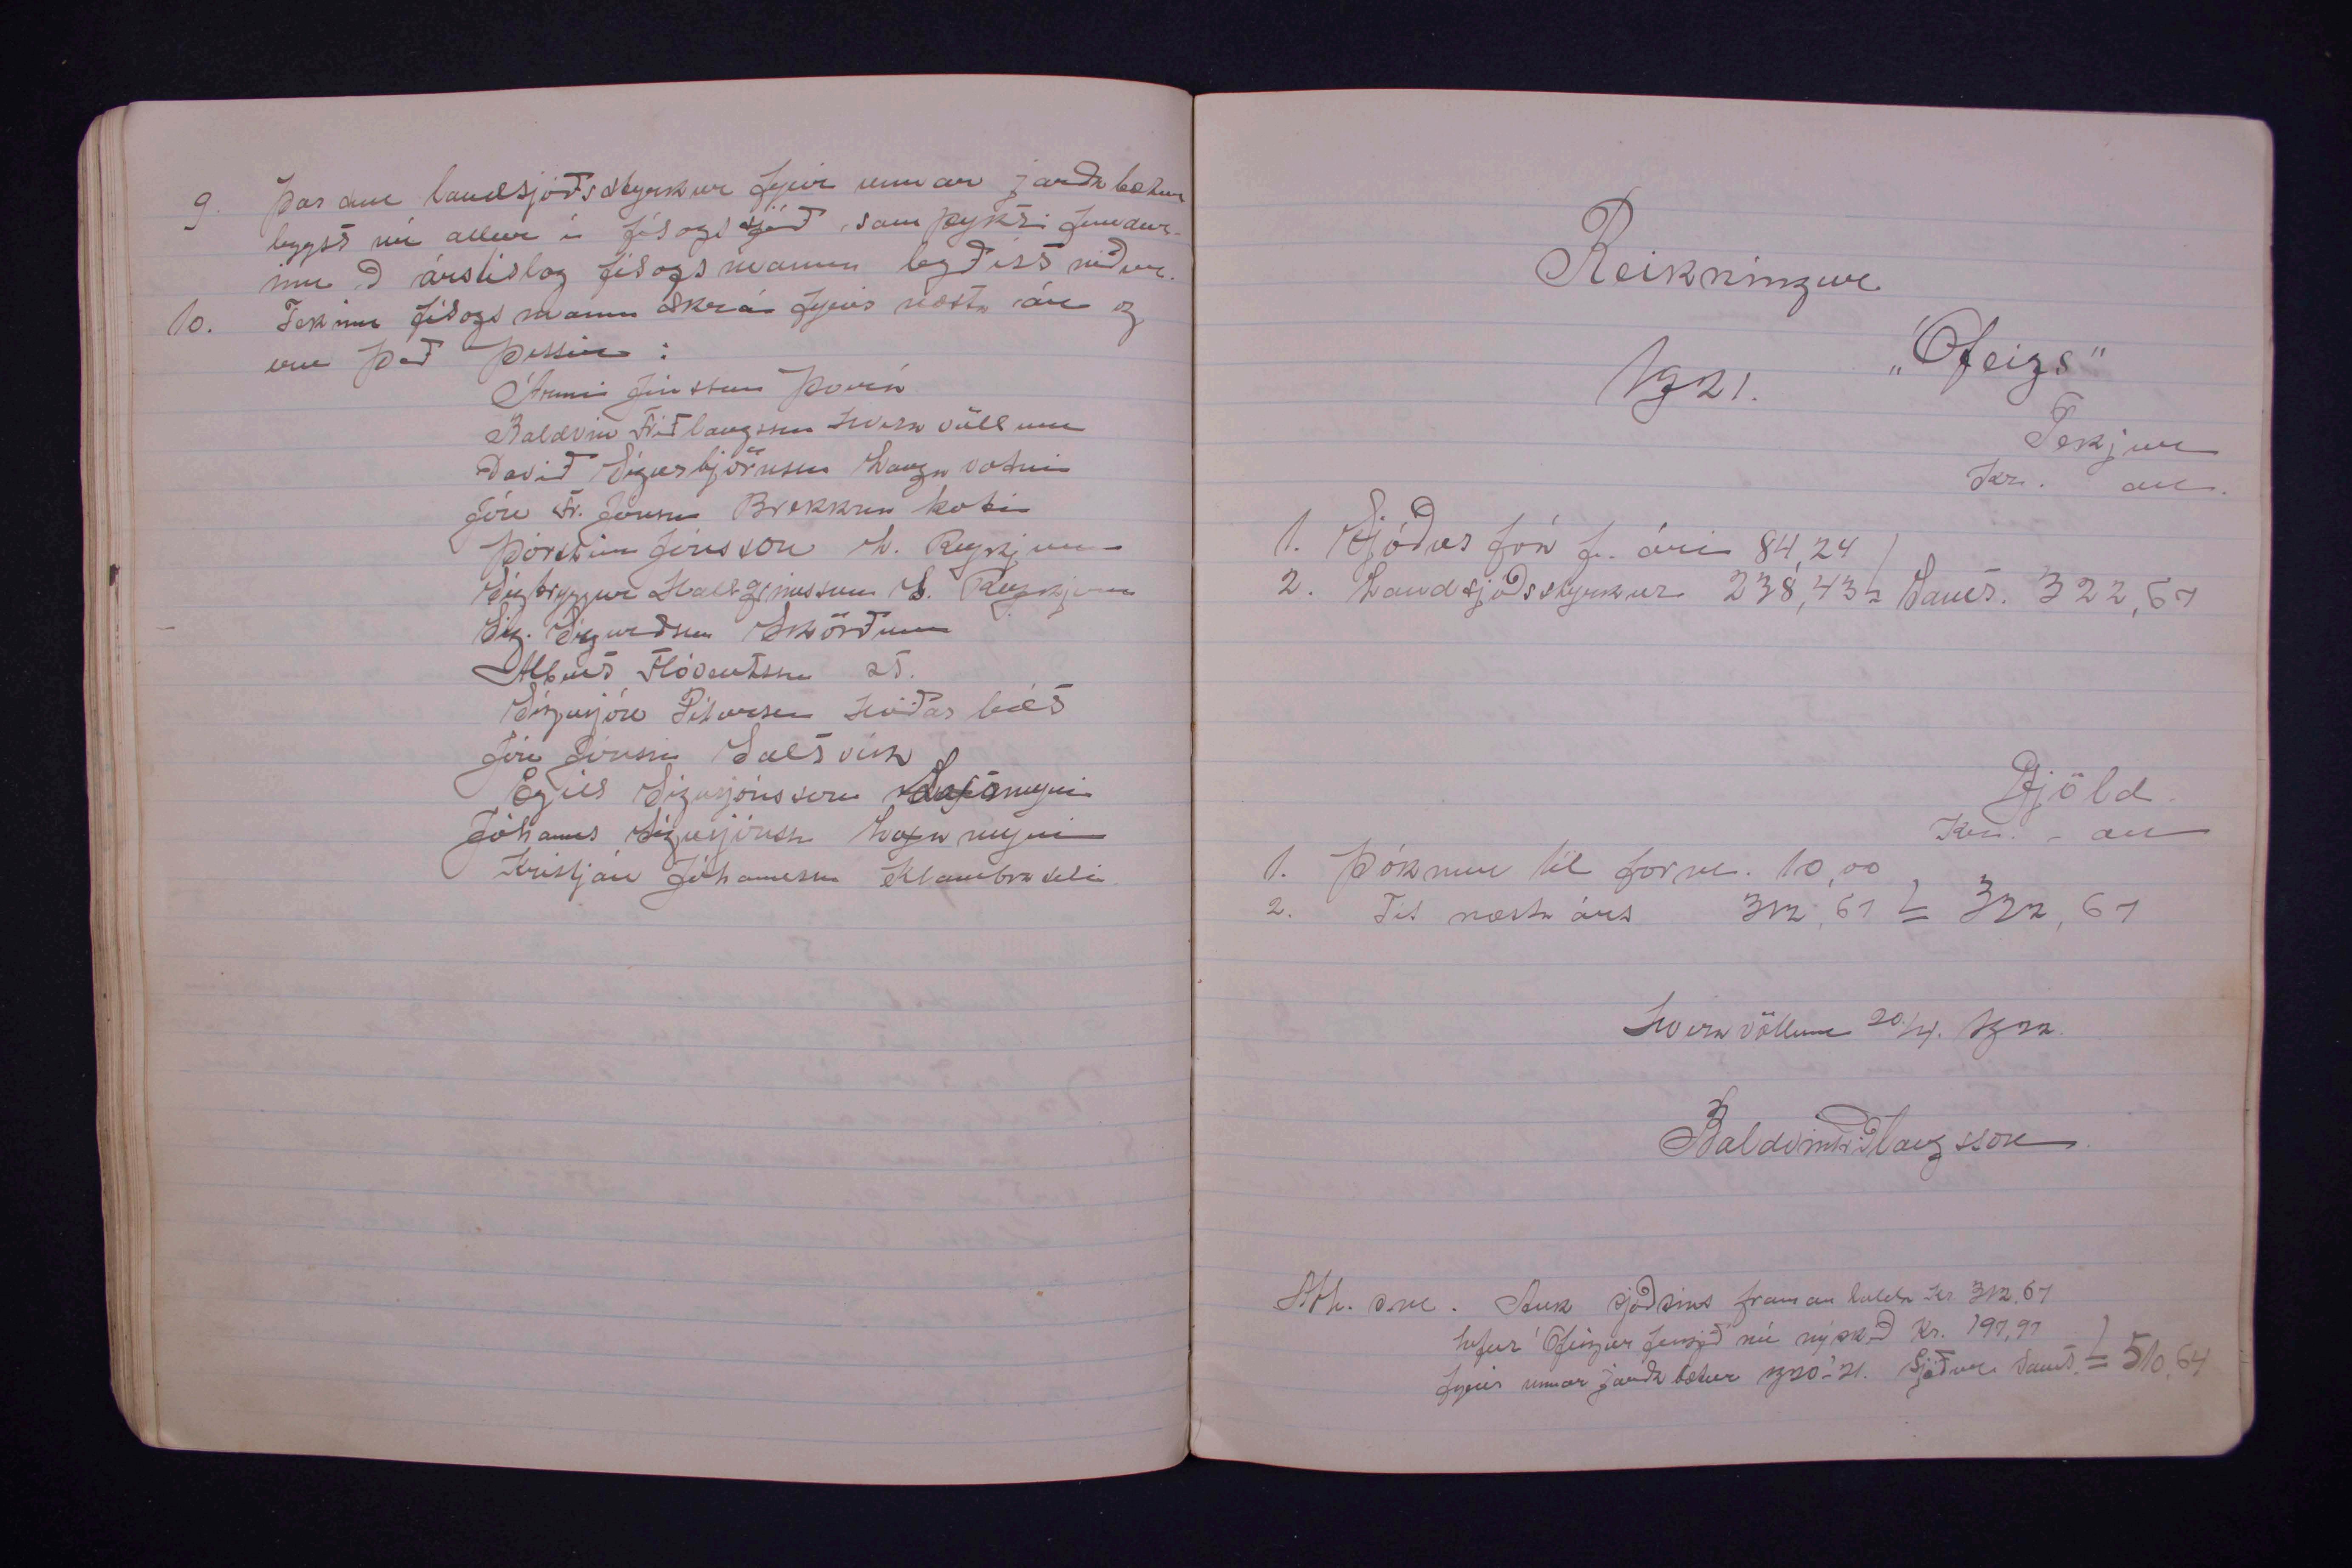 9. Þar sem landsjóðsstyrkur fyrir unnar jarðabætur
leggst nú allur í félagssjóð, samþykkti fundur-
inn að árstillög félagsmanna legðist niður.
10. Tekin félagsmanna skrá fyrir næsta ár og
eru það þessir:
Árni Jónsson Þverá
Baldvin Friðlaugsson Hveravöllum
Davið Sigurbjörnsson Langavatni
Jón Fr. Jónsson Brekknakoti
Þórarinn Jónsson L. Reykjum
Sigtryggur Hallgrímsson S. Reykjum
Sig. Sigurðsson Skörðum
Albert Flóventsson st.
Sigurjón Pétursson Heiðarbót
Jón Jónsson Saltvík
Egill Sigurjónsson Laxamýri
Jóhannes Sigurjónsson Laxamýri
Kristján Jóhannesson Klambraseli
Reikningur
"Ófeigs"
1921.
Tekjur
Kr. au.
1. Sjóður frá f. ári 84,24
2. Landsjóðsstyrkur 238,43 = Samt. 322,67
Gjöld
Kr. - au
1. Þóknun til form. 10,00
2. Til næsta árs 312,67 = 322,67
Hveravöllum 20/4. 1922.
Baldvin Friðlaugsson
Ath. s.m. Auk sjóðsins framantalda kr. 312.67
hefur Ófeigur fengið nú nýskeð Kr. 197,97
fyrir unnar jarðabætur 1920-21. Sjóður samt. = 510,64